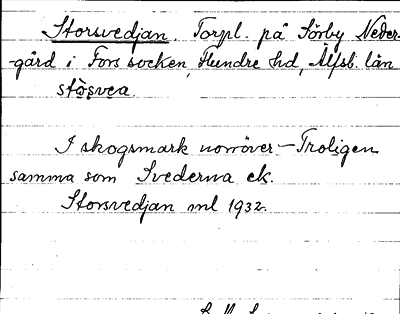 Storsvedjan. Torpl. på Sörby Neder-
-gård i Fors socken, Flundre hd, Älfsb. län
stòsvea.
I skogsmark norröver – Troligen
samma som Svederna ek.
Storsvedjan ml 1932.